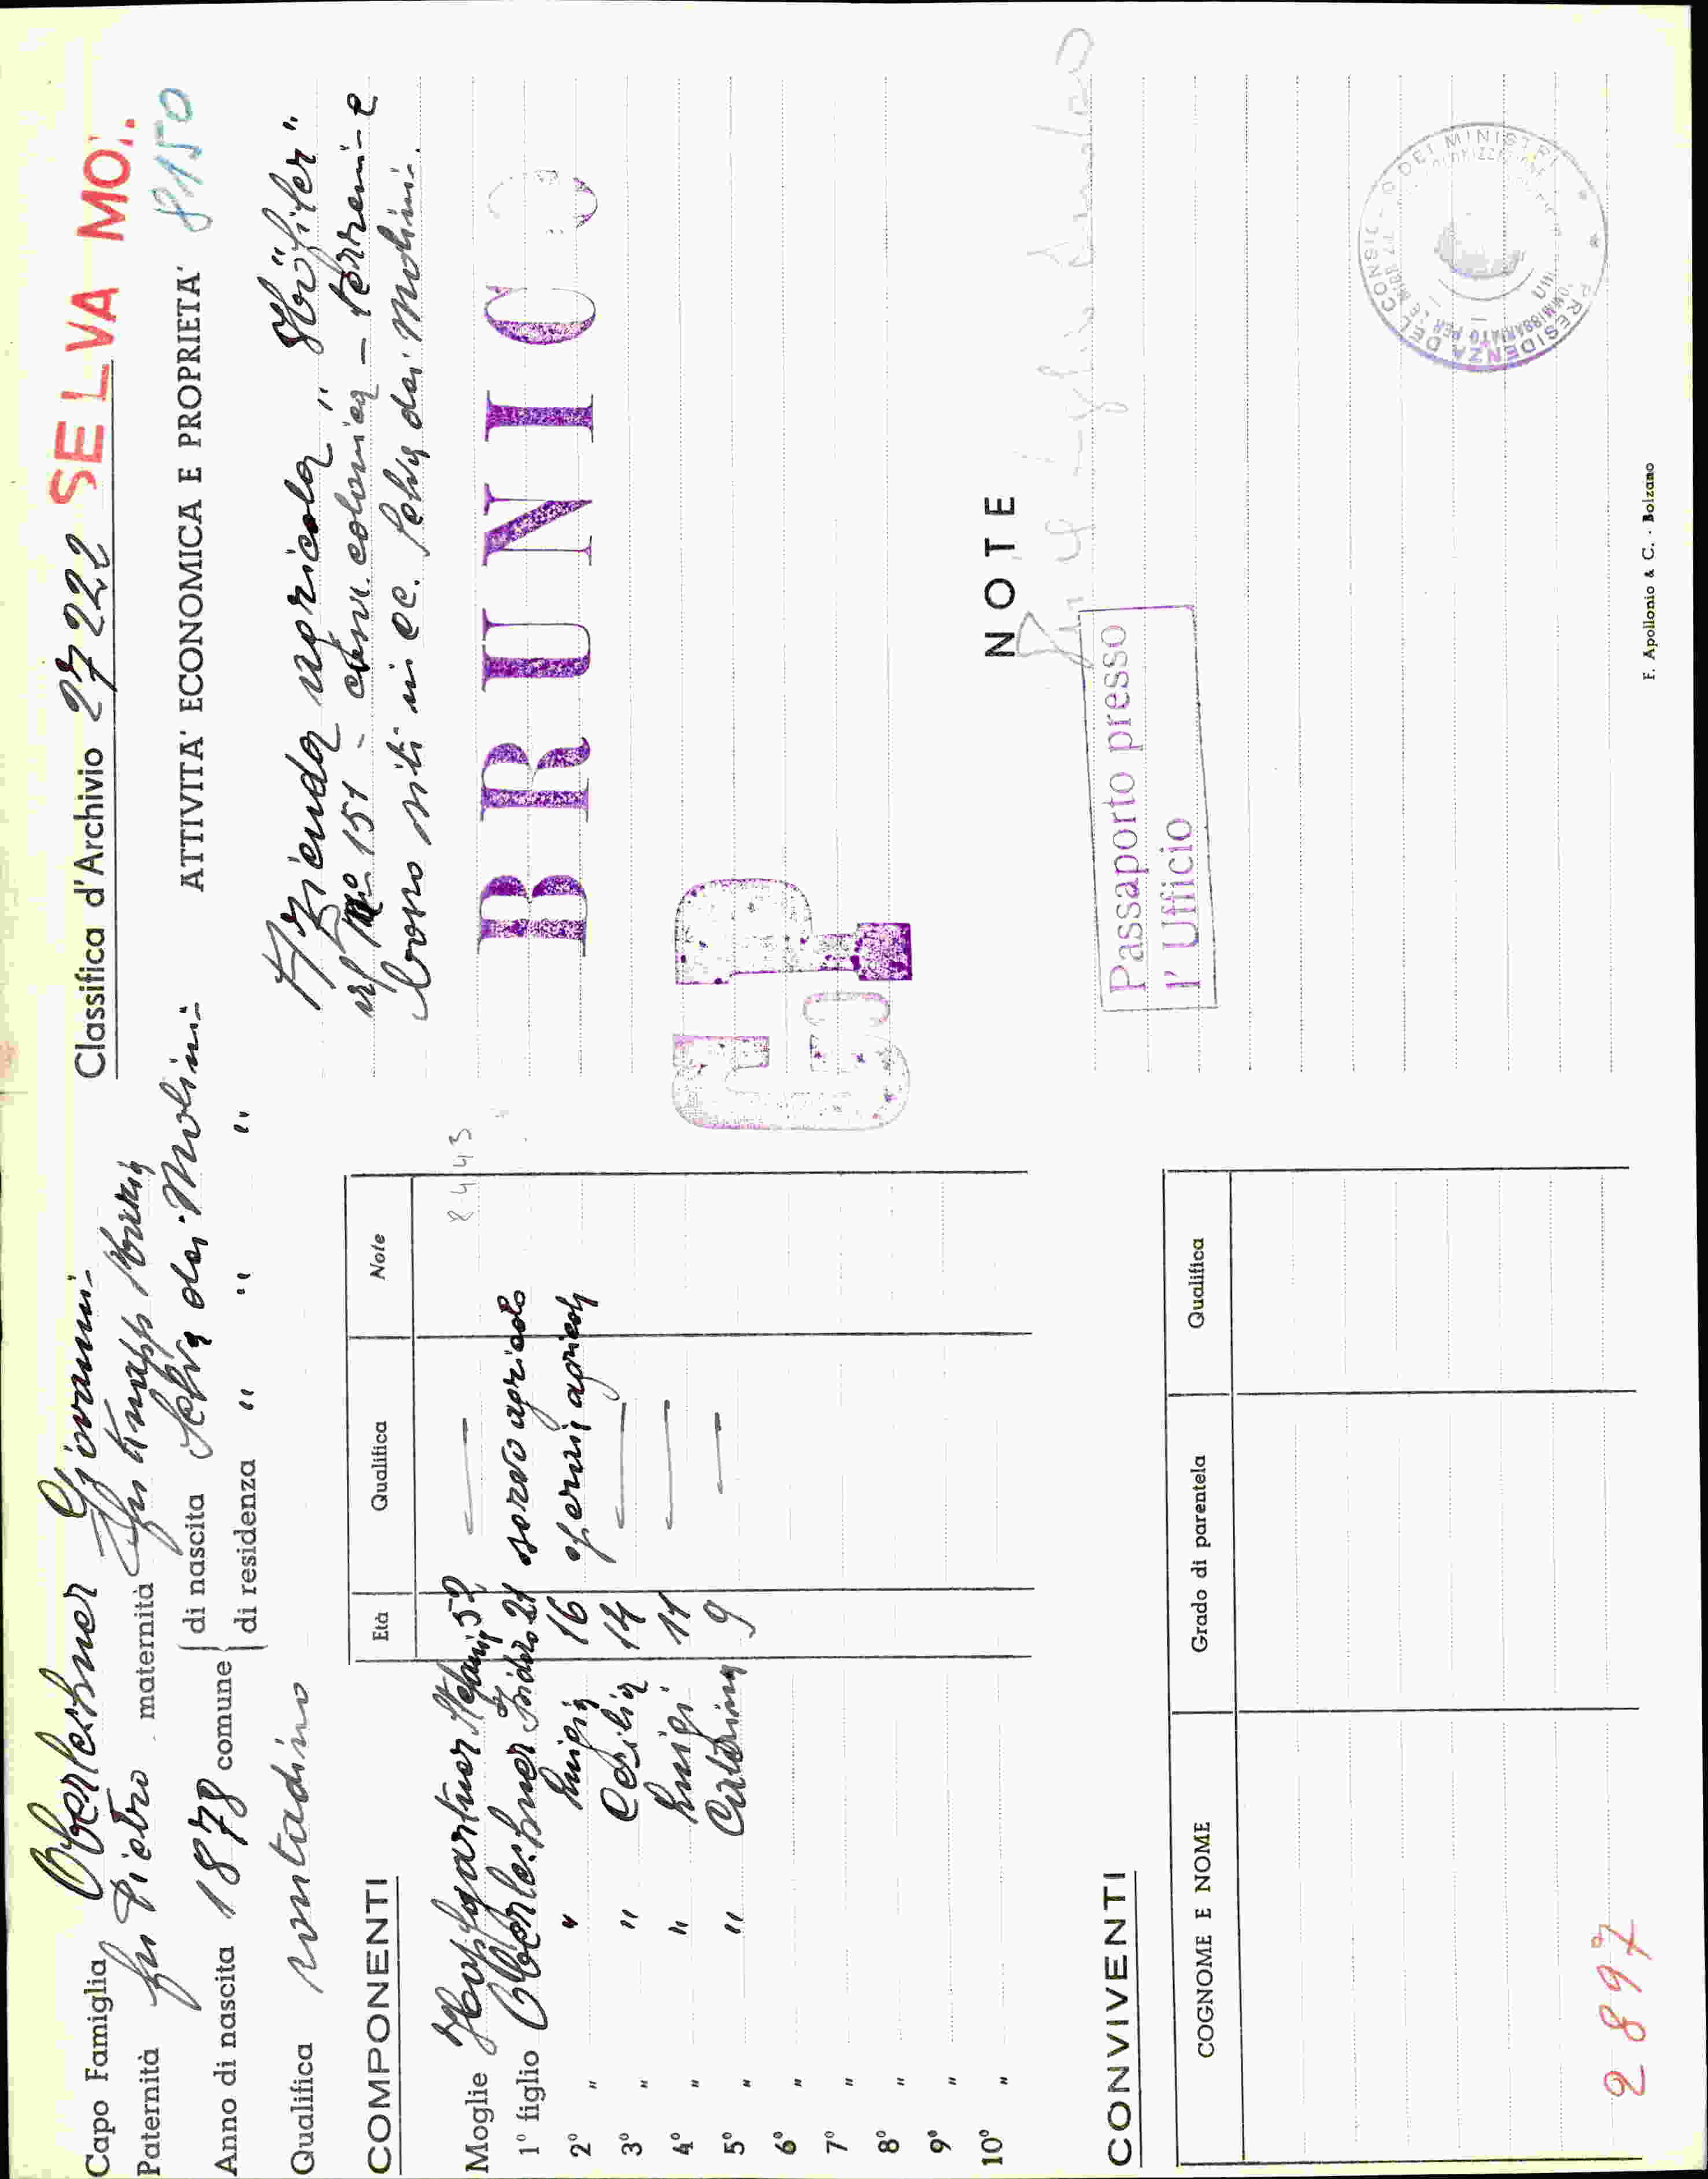 Capo Famiglia Oberlechner Giovanni
Classifica d'Archivio 27222 SELVA MOL.
Paternità fu Pietro maternità fu Knapp Maria
8150
Anno di nascita 1878 comune di nascita Selva dei Molini
di residenza " " "
ATTIVITA' ECONOMICA E PROPRIETA'
Qualifica contadino
Azienda agricola "Höfiler"
al No 151 - casa colonica - terreni e
bosco siti in cc. Selva dei Molini.
BRUNICO
COMPONENTI
Età Qualifica Note
Moglie Hopfgartner Stefania 52 —
8443
1° figlio Oberlechner Isidoro 21 servo agricolo
2° " " Luigia 16 operaia agricola
3° " " Cecilia 14 —
4° " " Luigi 11 —
5° " " Caterina 9 —
6° "
7° "
8° "
9° "
10° "
G.
NOTE
Passaporto presso
l'Ufficio
CONVIVENTI
COGNOME E NOME Grado di parentela Qualifica
PRESIDENZA DEL CONSIGLIO DEI MINISTRI
2897
F. Apollonio & C. - Bolzano